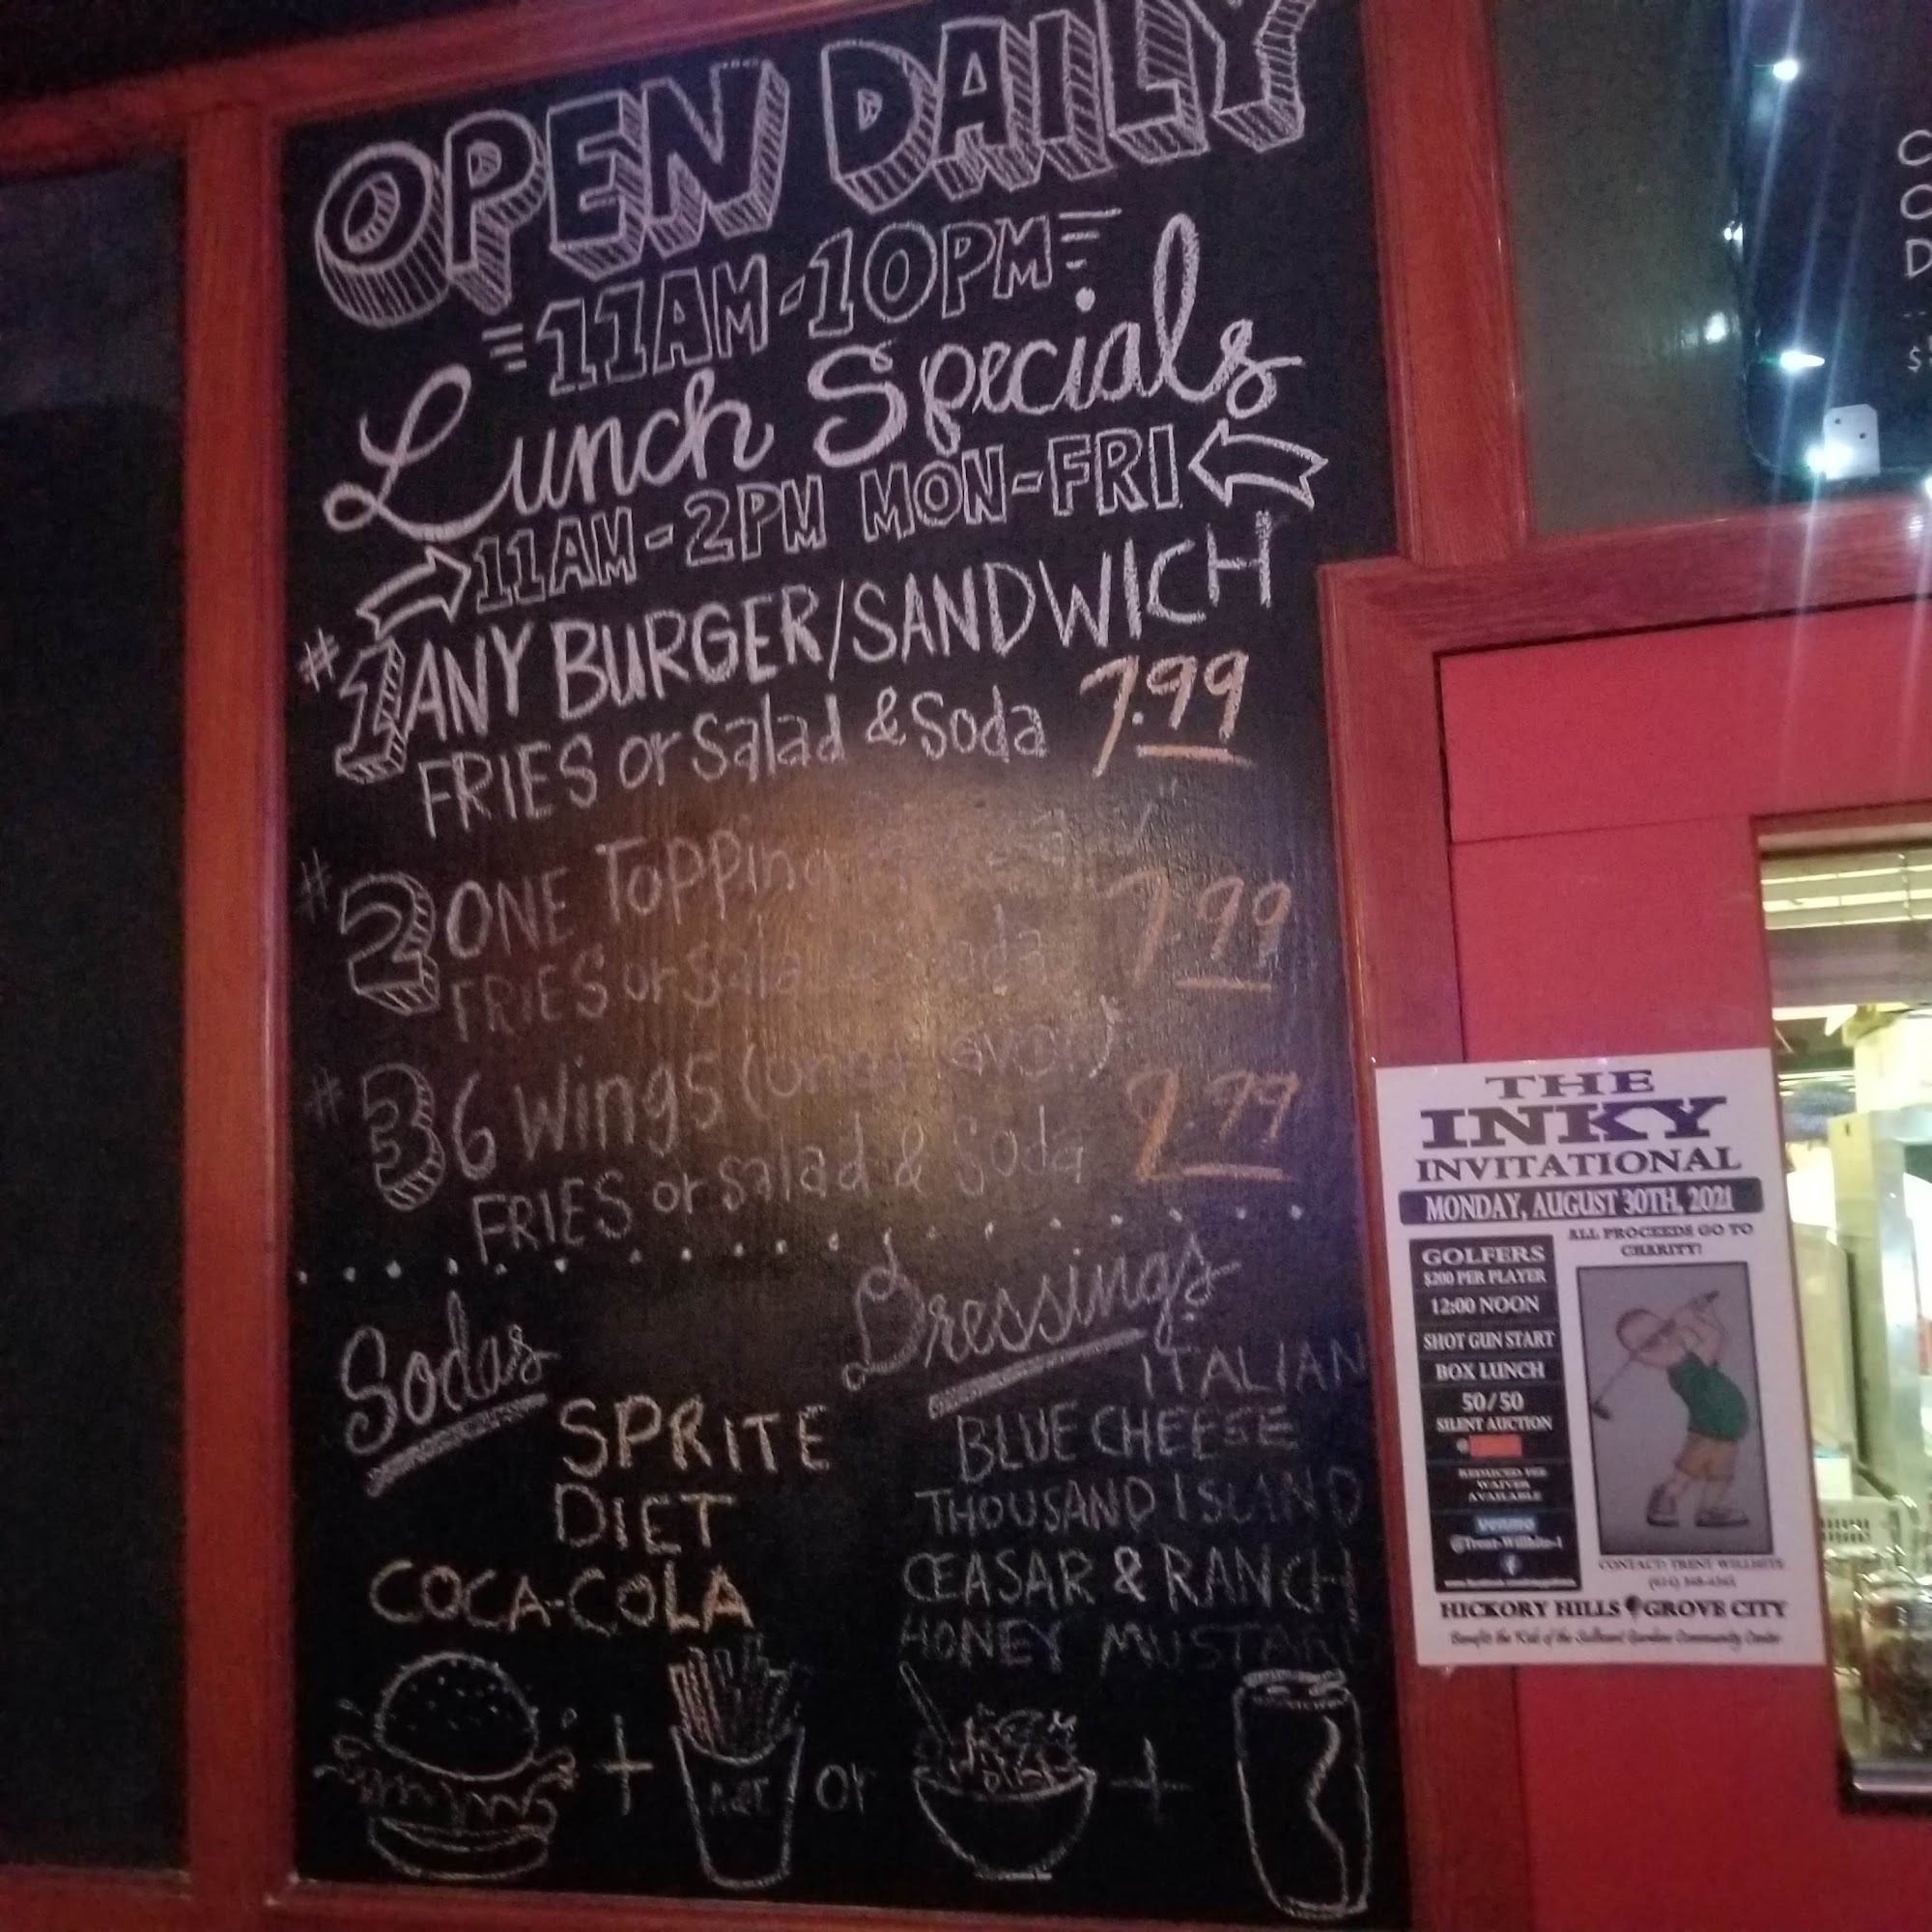 OPEN DAILY
11AM-10PM
Lunch Specials
11AM-2PM MON-FRI
#1 ANY BURGER/SANDWICH
FRIES or Salad & Soda 7.99
#2 ONE Topping
FRIES or Salad & Soda 7.99
#3 6 Wings (one flavor)
FRIES or Salad & Soda
Sodas
SPRITE
DIET
COCA-COLA
Dressings
ITALIAN
BLUE CHEESE
THOUSAND ISLAND
CEASAR & RANCH
HONEY MUSTARD
or
THE
INKY
INVITATIONAL
MONDAY, AUGUST 30TH, 2021
ALL PROCEEDS GO TO
CHARITY!
GOLFERS
$200 PER PLAYER
12:00 NOON
SHOT GUN START
BOX LUNCH
50/50
SILENT AUCTION
REDUCED FEE
WAIVER
AVAILABLE
venmo
@Trent-Willhite-1
CONTACT: TRENT WILLHITE
HICKORY HILLS GROVE CITY
Benefit the Kids of the Sullivant Gardens Community Center